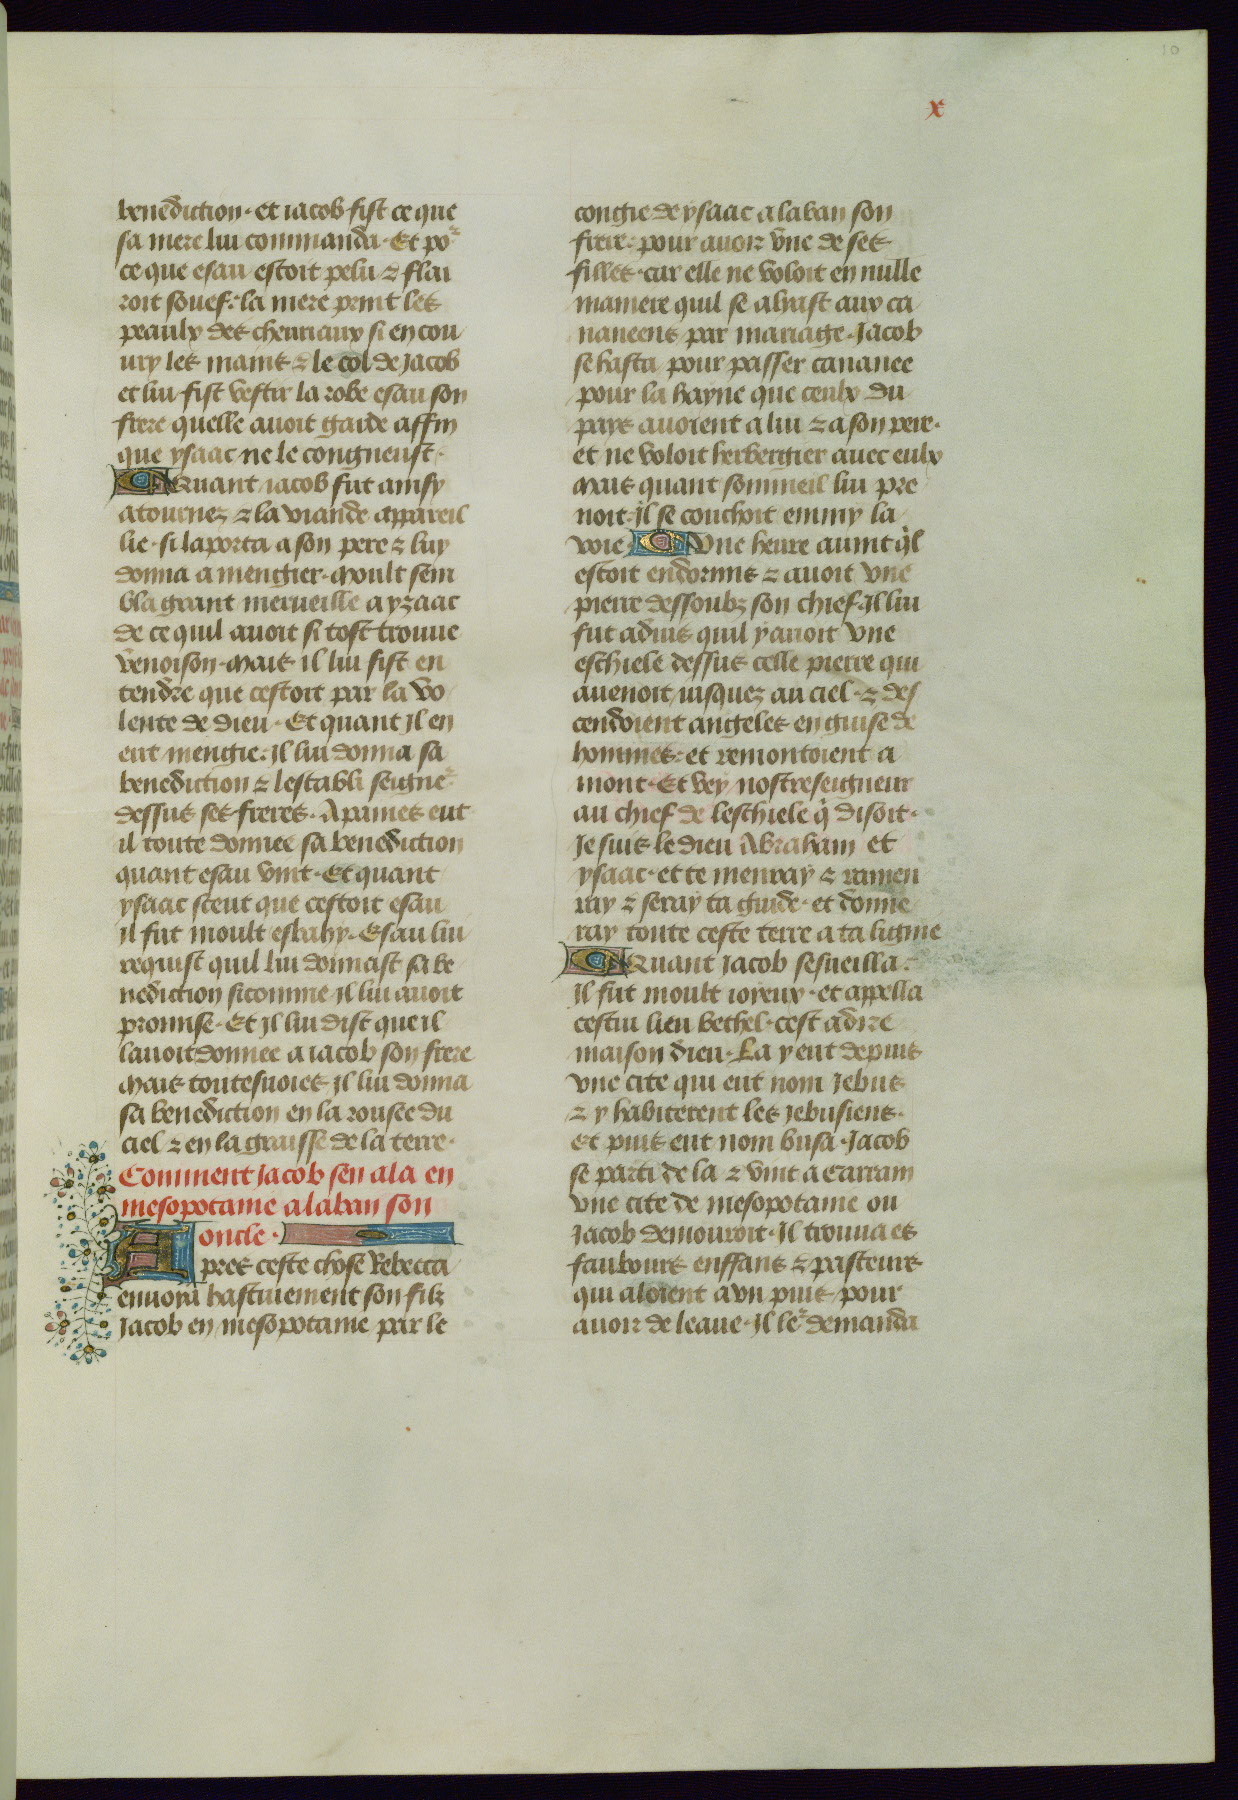 10
x
benediction· et iacob fist ce que
sa mere lui commanda· Et por
ce que esau estoit pelu ⁊ flai
roit souef· la mere print les
peaulx des cheuriaux si en cou
ury les mains ⁊ le col de Jacob
et lui fist vestir la robe esau son
frere quelle auoit garde affin
que ysaac ne le congneust·
Quant iacob fut ainsy
atournez ⁊ la viande appareil
lie· si laporta a son pere ⁊ luy
donna a mengier· Moult sem
bla grant merueille a yzaac
de ce quil auoit si tost trouue
venoison· Mais il lui fist en
tendre que cestoit par la vo
lente de dieu· Et quant Jl en
eut mengie· Jl lui donna sa
benediction ⁊ lestabli seigner
dessus ses freres· A paines eut
il toute donnee sa benediction
quant esau vint· Et quant
ysaac sceut que cestoit esau
Jl fut moult esbahy· Esau lui
requist quil lui donnast sa be
nediction sicomme Jl lui auoit
promise· Et Jl lui dist que il
lauoit donnee a iacob son frere
Mais toutesuoies Jl lui donna
sa benediction en la rousee du
ciel ⁊ en la graisse de la terre·
Comment Jacob sen ala en
mesopotame a laban son
oncle·
Apres ceste chose Rebecca
enuoya hastiuement son filz
Jacob en mesopotame par le
congie de ysaac a laban son
frere· pour auoir vne de ses
filles· car elle ne voloit en nulle
maniere quil se aliast aux ca
naneens par mariage· Jacob
se hasta pour passer cananee
pour la hayne que ceulx du
pays auoient a lui ⁊ a son pere·
et ne voloit herbergier auec eulx
Mais quant sommeil lui pre
noit· Jl se couchoit emmy la
voie· Vne heure auint q̇l
estoit endormis ⁊ auoit vne
pierre dessoubz son chief· Jl lui
fut aduis quil y auoit vne
eschiele dessus celle pierre qui
auenoit iusquez au ciel· ⁊ des
cendoient angeles en guise de
hommes· et remontoient a
mont· Et vey nostreseigneur
au chief de leschiele q̇ disoit·
Je suis le dieu Abraham et
ysaac· et te menray ⁊ ramen
ray ⁊ seray ta guide· et donne
ray toute ceste terre a ta lignie
Quant Jacob sesueilla·
Jl fut moult ioyeux· et appella
cestui lieu bethel· cest adire
maison dieu· La y eut depuis
vne cite qui eut nom Jebus
⁊ y habiterent les Jebusiens·
Et puis eut nom busa· Jacob
se parti de la ⁊ vint a Carram
vne cite de mesopotame ou
Jacob demouroit· Jl trouua es
faubours enffans ⁊ pasteurs
qui aloient a vn puis pour
auoir de leaue· Jl ler demanda